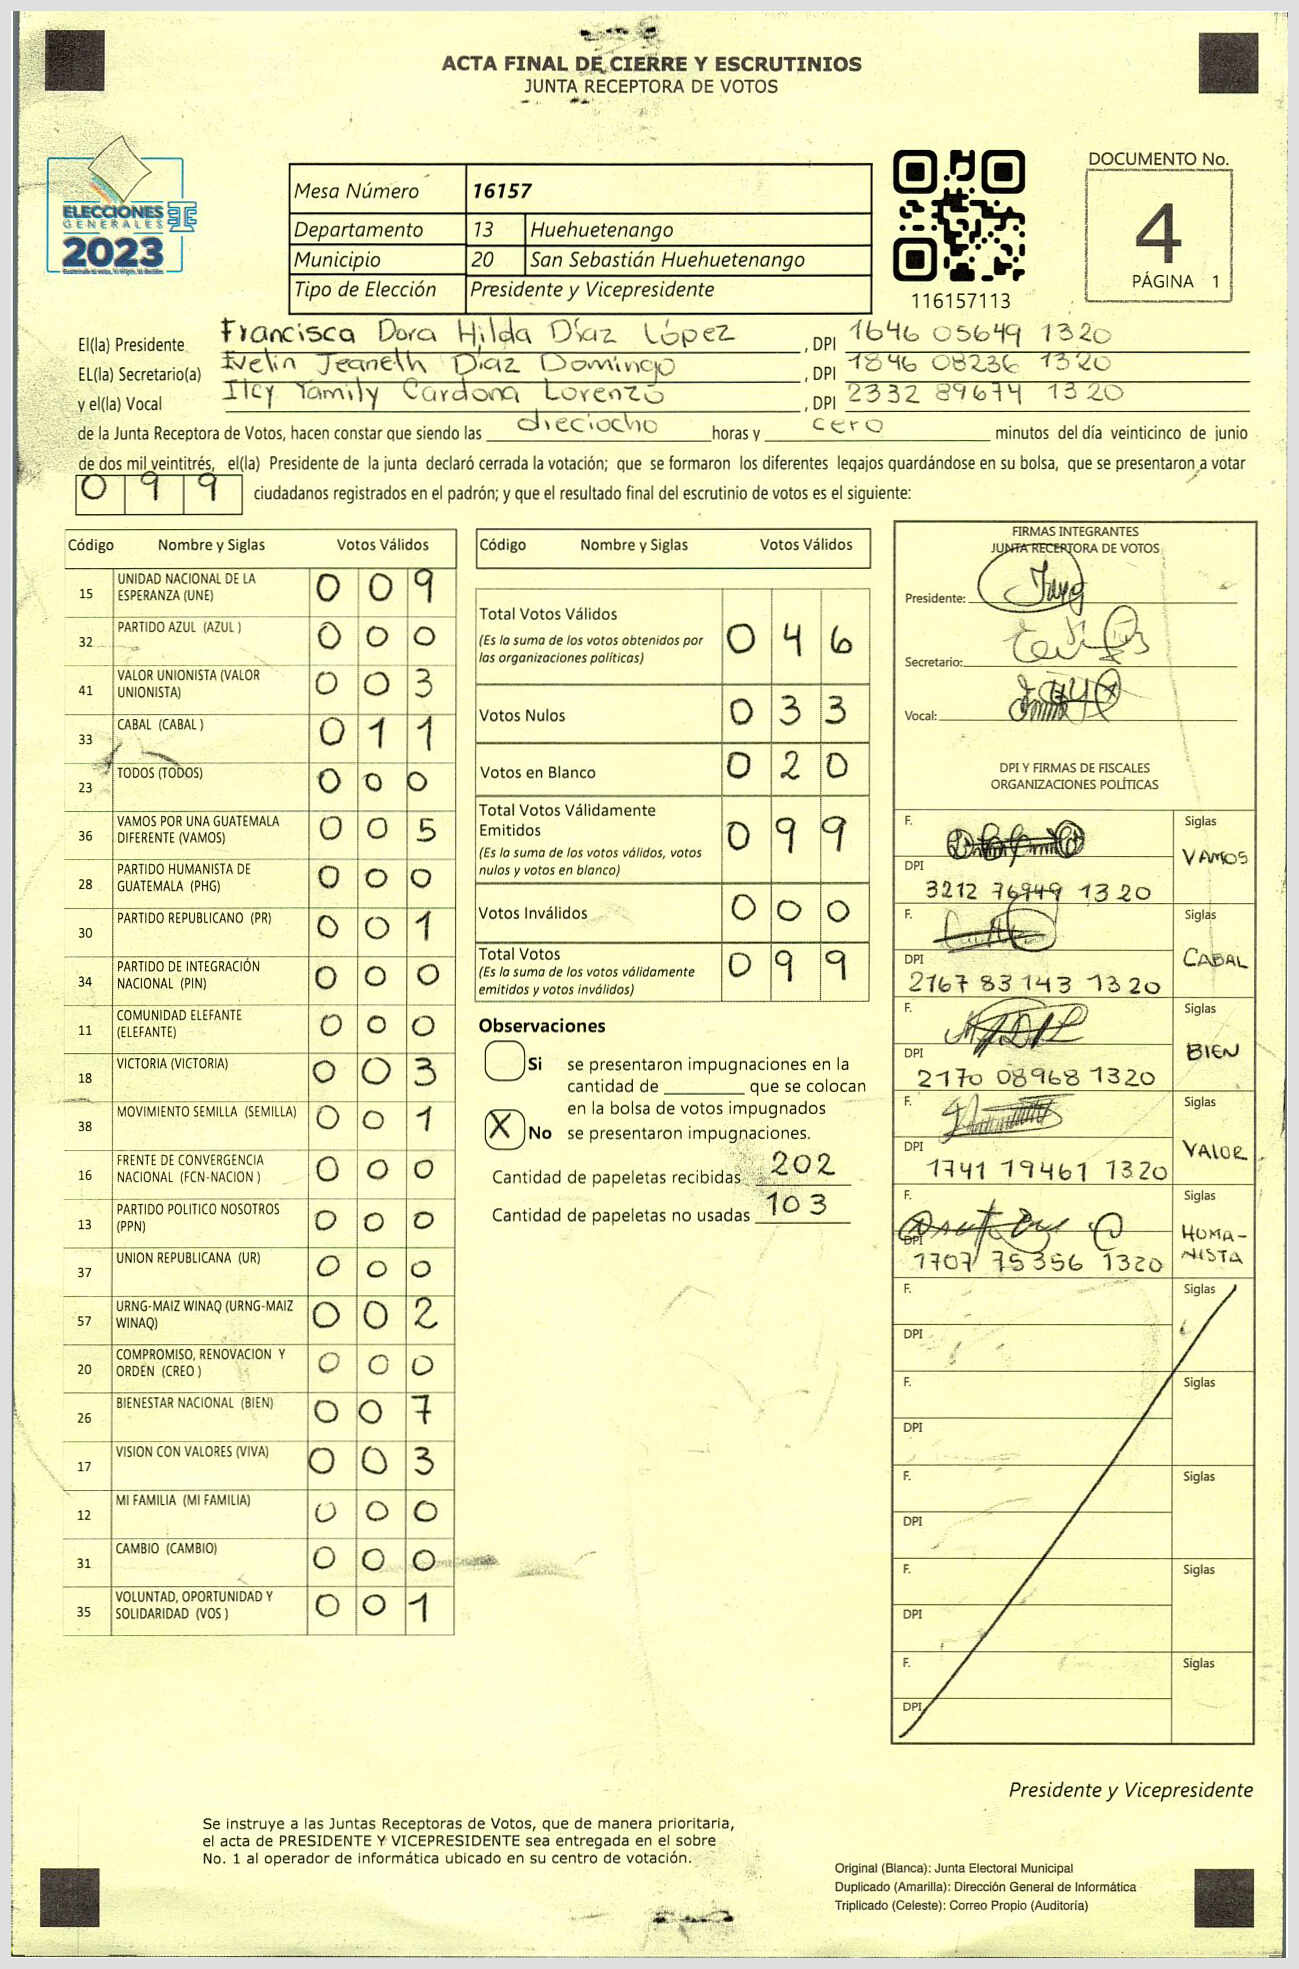 ACTA FINAL DE CIERRE Y ESCRUTINIOS
JUNTA RECEPTORA DE VOTOS
ELECCIONES
GENERALES
2023
Mesa Número 16157
Departamento 13 Huehuetenango
Municipio 20 San Sebastián Huehuetenango
Tipo de Elección Presidente y Vicepresidente
116157113
DOCUMENTO No.
4
PÁGINA 1
El(la) Presidente Francisca Dora Hilda Díaz López , DPI 1646 05649 1320
EL(la) Secretario(a) Evelin Jeaneth Díaz Domingo , DPI 1846 08236 1320
y el(la) Vocal Ilcy Yamily Cardona Lorenzo , DPI 2332 89674 1320
de la Junta Receptora de Votos, hacen constar que siendo las dieciocho horas y cero minutos del día veinticinco de junio
de dos mil veintitrés, el(la) Presidente de la junta declaró cerrada la votación; que se formaron los diferentes legajos quardándose en su bolsa, que se presentaron a votar
099 ciudadanos registrados en el padrón; y que el resultado final del escrutinio de votos es el siguiente:
Código Nombre y Siglas Votos Válidos
15 UNIDAD NACIONAL DE LA ESPERANZA (UNE) 0 0 9
32 PARTIDO AZUL (AZUL ) 0 0 0
41 VALOR UNIONISTA (VALOR UNIONISTA) 0 0 3
33 CABAL (CABAL ) 0 1 1
23 TODOS (TODOS) 0 0 0
36 VAMOS POR UNA GUATEMALA DIFERENTE (VAMOS) 0 0 5
28 PARTIDO HUMANISTA DE GUATEMALA (PHG) 0 0 0
30 PARTIDO REPUBLICANO (PR) 0 0 1
34 PARTIDO DE INTEGRACIÓN NACIONAL (PIN) 0 0 0
11 COMUNIDAD ELEFANTE (ELEFANTE) 0 0 0
18 VICTORIA (VICTORIA) 0 0 3
38 MOVIMIENTO SEMILLA (SEMILLA) 0 0 1
16 FRENTE DE CONVERGENCIA NACIONAL (FCN-NACION ) 0 0 0
13 PARTIDO POLITICO NOSOTROS (PPN) 0 0 0
37 UNION REPUBLICANA (UR) 0 0 0
57 URNG-MAIZ WINAQ (URNG-MAIZ WINAQ) 0 0 2
20 COMPROMISO, RENOVACION Y ORDEN (CREO ) 0 0 0
26 BIENESTAR NACIONAL (BIEN) 0 0 7
17 VISION CON VALORES (VIVA) 0 0 3
12 MI FAMILIA (MI FAMILIA) 0 0 0
31 CAMBIO (CAMBIO) 0 0 0
35 VOLUNTAD, OPORTUNIDAD Y SOLIDARIDAD (VOS ) 0 0 1
Código Nombre y Siglas Votos Válidos
Total Votos Válidos 0 4 6
(Es la suma de los votos obtenidos por
las organizaciones políticas)
Votos Nulos 0 3 3
Votos en Blanco 0 2 0
Total Votos Válidamente
Emitidos 0 9 9
(Es la suma de los votos válidos, votos
nulos y votos en blanco)
Votos Inválidos 0 0 0
Total Votos 0 9 9
(Es la suma de los votos válidamente
emitidos y votos inválidos)
Observaciones
Si se presentaron impugnaciones en la
cantidad de ________ que se colocan
en la bolsa de votos impugnados
X No se presentaron impugnaciones.
Cantidad de papeletas recibidas 202
Cantidad de papeletas no usadas 103
FIRMAS INTEGRANTES
JUNTA RECEPTORA DE VOTOS
Presidente:
Secretario:
Vocal:
DPI Y FIRMAS DE FISCALES
ORGANIZACIONES POLÍTICAS
F. Siglas
VAMOS
DPI
3212 76949 1320
F. Siglas
CABAL
DPI
2167 83143 1320
F. Siglas
BIEN
DPI
2170 08968 1320
F. Siglas
VALOR
DPI
1741 19461 1320
F. Siglas
HUMA-
NISTA
DPI
1707 75356 1320
F. Siglas
DPI
F. Siglas
DPI
F. Siglas
DPI
F. Siglas
DPI
F. Siglas
DPI
Presidente y Vicepresidente
Se instruye a las Juntas Receptoras de Votos, que de manera prioritaria,
el acta de PRESIDENTE Y VICEPRESIDENTE sea entregada en el sobre
No. 1 al operador de informática ubicado en su centro de votación.
Original (Blanca): Junta Electoral Municipal
Duplicado (Amarilla): Dirección General de Informática
Triplicado (Celeste): Correo Propio (Auditoría)